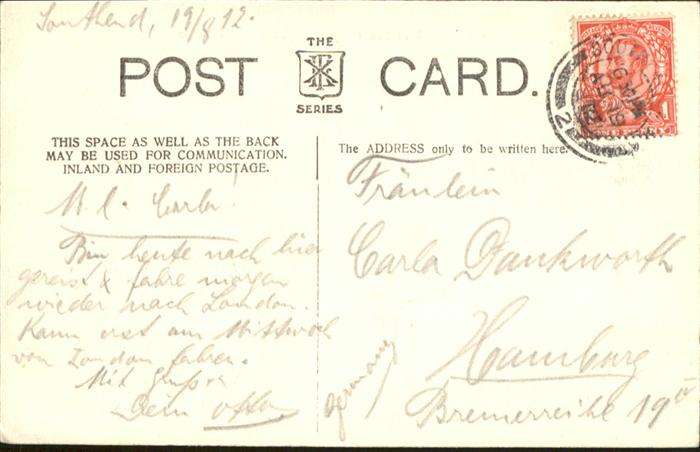 Southend, 19/8 12.
POST CARD.
THE
SERIES
THIS SPACE AS WELL AS THE BACK
MAY BE USED FOR COMMUNICATION.
INLAND AND FOREIGN POSTAGE.
The ADDRESS only to be written here.
M. l. Carla!
Bin heute nach hier
gereist & fahre morgen
wieder nach London.
Kann erst am Mittwoch
von London fahren.
Mit Gruss
Dein Otto
Fräulein
Carla Dankworth
Hamburg
Germany
Bremerreihe 19